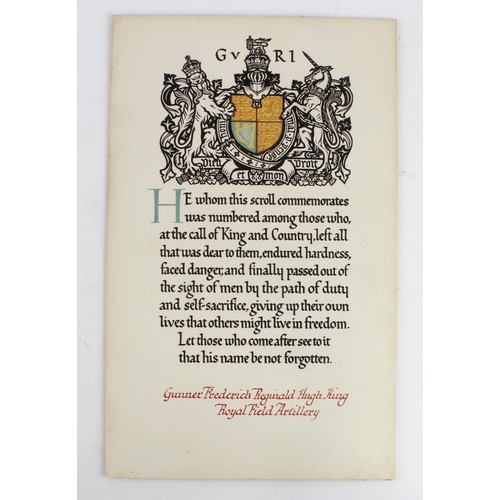 GV RI
Dieu et mon Droit
HE whom this scroll commemorates
was numbered among those who,
at the call of King and Country, left all
that was dear to them, endured hardness,
faced danger, and finally passed out of
the sight of men by the path of duty
and self-sacrifice, giving up their own
lives that others might live in freedom.
Let those who come after see to it
that his name be not forgotten.
Gunner Frederick Reginald Hugh King
Royal Field Artillery